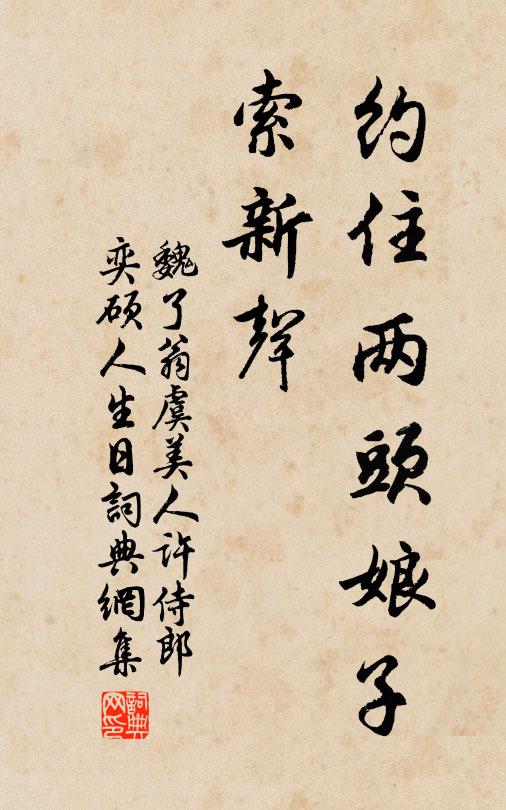 约住两頭娘子
索新聲
魏了翁虞美人许侍郎
奕硕人生日詞典網集
詞典
网印